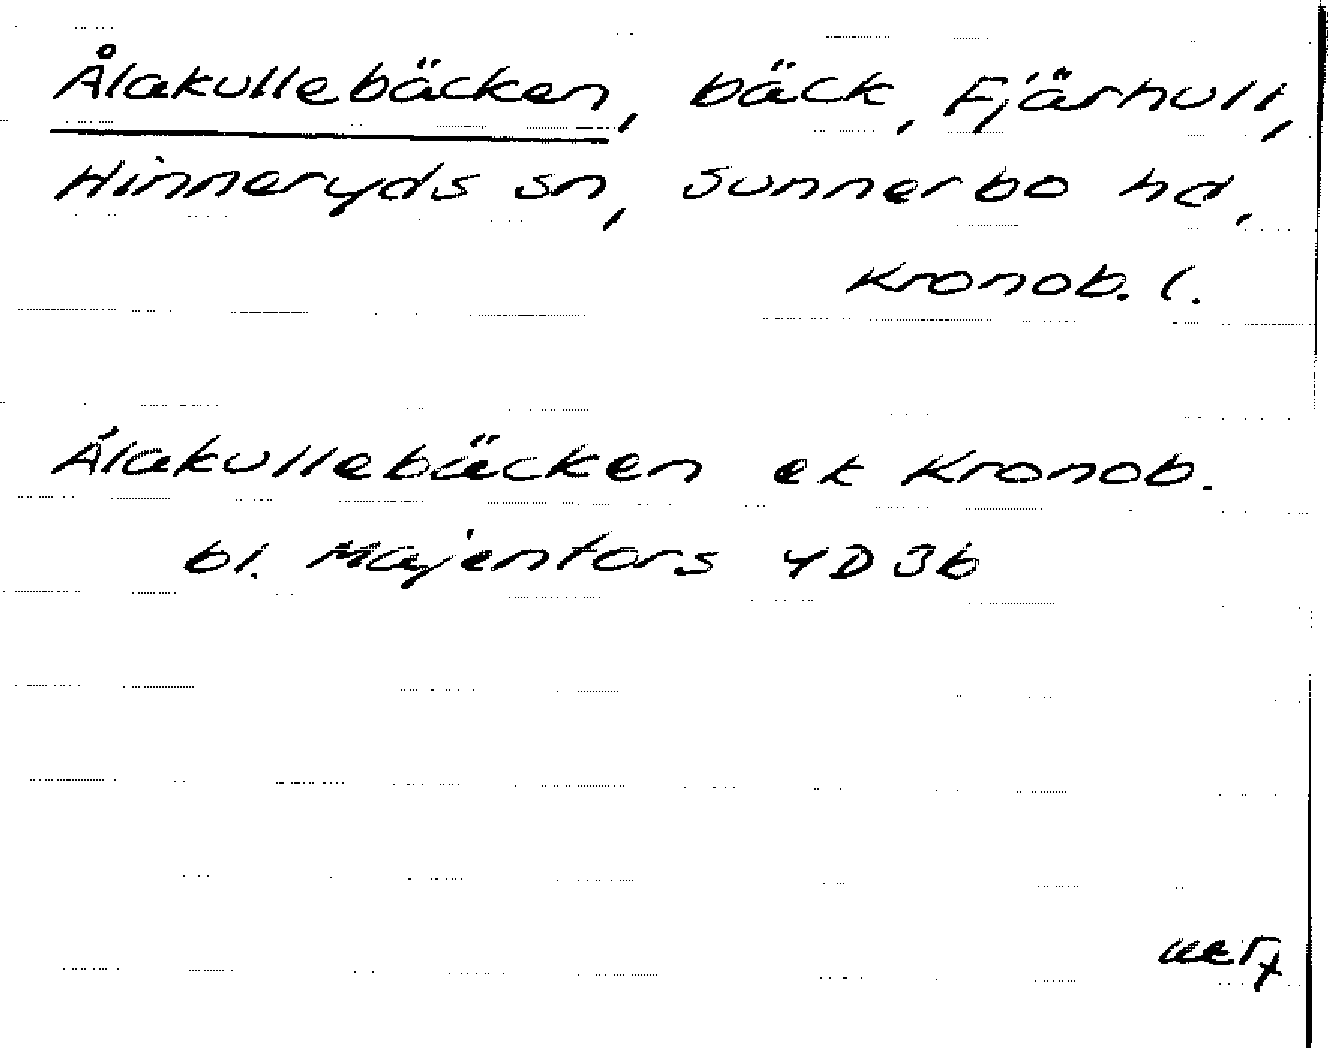 Ålakullebäcken, bäck, Fjärhult,
Hinneryds sn, Sunnerbo hd,
Kronob. l.
Ålakullebäcken ek Kronob.
bl. Majenfors 4D3b